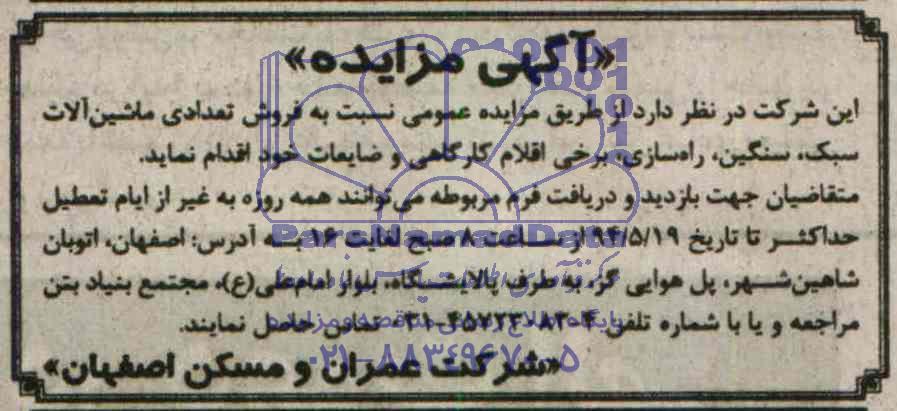 «آگهی مزایده»
این شرکت در نظر دارد از طریق مزایده عمومی نسبت به فروش تعدادی ماشین‌آلات
سبک، سنگین، راه‌سازی، برخی اقلام کارگاهی و ضایعات خود اقدام نماید.
متقاضیان جهت بازدید و دریافت فرم مربوطه می‌توانند همه روزه به غیر از ایام تعطیل
حداکثر تا تاریخ ۹۴/۵/۱۹ از ساعت ۸ صبح لغایت ۱۶ به آدرس: اصفهان، اتوبان
شاهین‌شهر، پل هوایی گز، به طرف پالایشگاه، بلوار امام‌علی(ع)، مجتمع بنیاد بتن
مراجعه و یا با شماره تلفن تماس حاصل نمایند.
«شرکت عمران و مسکن اصفهان»
ParsNamadData
۰۲۱-۸۸۳۴۹۶۷۰-۵